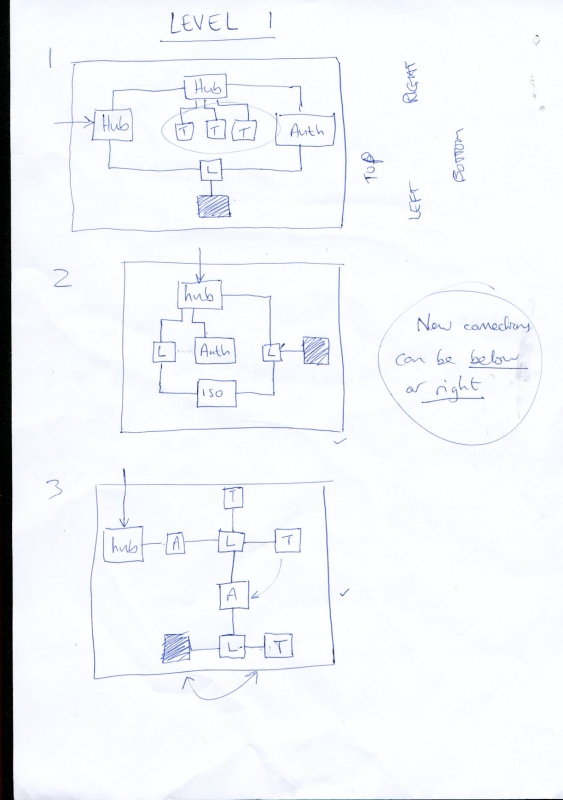 LEVEL 1
1
Hub
Hub
T T T
Auth
L
RIGHT
TOP
BOTTOM
LEFT
2
hub
L
Auth
L
ISO
New connections
can be below
or right
3
T
hub
A
L
T
A
L
T